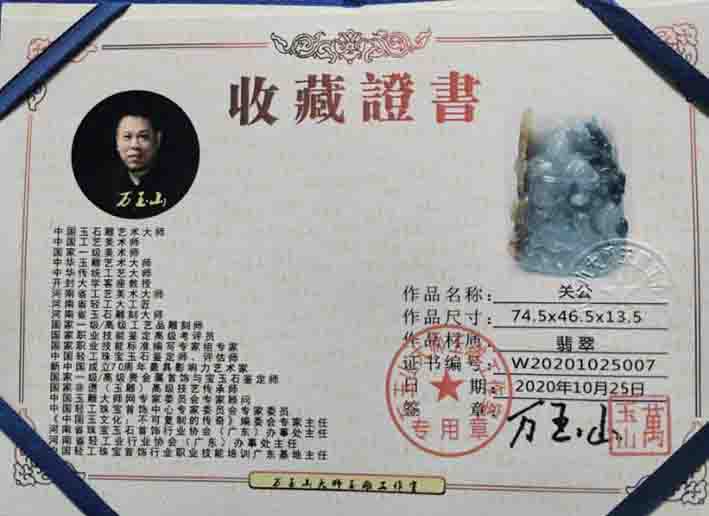 收藏證書
万玉山
中国玉石雕艺术大师
中国工艺美术师
国家一级美术师
中华玉雕艺术大师
中华传统工艺大师
开封大学客座教授
河南省工艺美术大师
河南省轻工大工匠
河南省玉石雕刻大师
国家一级/高级工艺品雕刻师
国家职业技能鉴定高级考评员
国家职业技能标准编写专家组专家
中国轻工珠宝玉石鉴定师、评估师
新中国成立70周年最具影响力艺术家
国家一级/高级贵金属首饰与宝玉石鉴定师
国家非遗（玉雕）高级技艺传承师
中国玉雕大师网专家委员会专家顾问
中国轻工珠宝首饰中心专家委员会专家委员
《中国玉文化：不可复制的传奇》编委会专家主任
河南省珠宝玉石首饰行业协会（广东）办事处主任
河南省轻工业行业协会（广东）办事处主任
中国轻工珠宝首饰行业职业技能培训广东基地主任
作品名称： 关公
作品尺寸： 74.5x46.5x13.5
作品材质： 翡翠
证书编号： W20201025007
日 期： 2020年10月25日
签 章： 万玉山
萬玉山
专用章
万玉山大师玉雕工作室